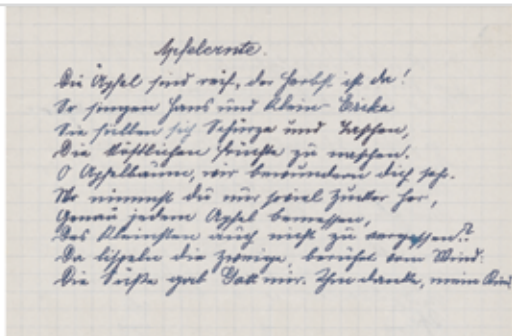 Apfelernte.
Die Äpfel sind reif, der Herbst ist da!
So singen Hans und Klein-Erika
Sie füllen sich Schürze und Taschen,
Die köstlichen Früchte zu naschen.
O Apfelbaum, wir bewundern dich sehr.
Wo nimmst du nur soviel Zucker her,
Genau jedem Apfel bemessen,
Des Kleinsten auch nicht zu vergessen?
Da lispeln die Zweige, berührt vom Wind:
Die Süße gab Gott mir. Ihm danke, mein Kind